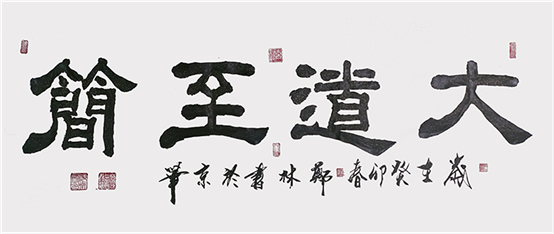 大道至簡
歲在癸卯春鄭林書於京華